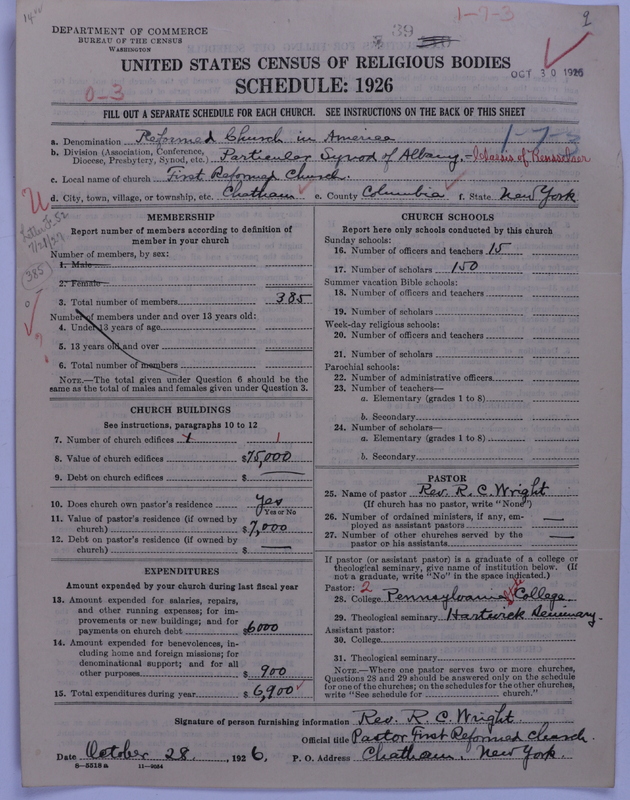 1-7-3
9
39
DEPARTMENT OF COMMERCE
BUREAU OF THE CENSUS
WASHINGTON
UNITED STATES CENSUS OF RELIGIOUS BODIES
OCT 30 1926
SCHEDULE: 1926
0-3
FILL OUT A SEPARATE SCHEDULE FOR EACH CHURCH. SEE INSTRUCTIONS ON THE BACK OF THIS SHEET
1-7-3
a. Denomination Reformed Church in America
b. Division (Association, Conference, Diocese, Presbytery, Synod, etc.) Particular Synod of Albany. - Classis of Rensselaer
c. Local name of church First Reformed Church.
d. City, town, village, or township, etc. Chatham e. County Columbia f. State New York
Letter F. 52
7/21/27
385
MEMBERSHIP
Report number of members according to definition of
member in your church
Number of members, by sex:
1. Male
2. Female
3. Total number of members 385
Number of members under and over 13 years old:
4. Under 13 years of age
5. 13 years old and over
6. Total number of members
NOTE.—The total given under Question 6 should be the
same as the total of males and females given under Question 3.
CHURCH BUILDINGS
See instructions, paragraphs 10 to 12
7. Number of church edifices 1 1
8. Value of church edifices $75,000
9. Debt on church edifices $
10. Does church own pastor's residence Yes
Yes or No
11. Value of pastor's residence (if owned by
church) $7,000
12. Debt on pastor's residence (if owned by
church) $
EXPENDITURES
Amount expended by your church during last fiscal year
13. Amount expended for salaries, repairs,
and other running expenses; for im-
provements or new buildings; and for
payments on church debt $6000
14. Amount expended for benevolences, in-
cluding home and foreign missions; for
denominational support; and for all
other purposes $900
15. Total expenditures during year $6,900
CHURCH SCHOOLS
Report here only schools conducted by this church
Sunday schools:
16. Number of officers and teachers 15
17. Number of scholars 150
Summer vacation Bible schools:
18. Number of officers and teachers
19. Number of scholars
Week-day religious schools:
20. Number of officers and teachers
21. Number of scholars
Parochial schools:
22. Number of administrative officers
23. Number of teachers—
a. Elementary (grades 1 to 8)
b. Secondary
24. Number of scholars—
a. Elementary (grades 1 to 8)
b. Secondary
PASTOR
25. Name of pastor Rev. R. C. Wright
(If church has no pastor, write "None")
26. Number of ordained ministers, if any, em-
ployed as assistant pastors
27. Number of other churches served by the
pastor or his assistants
If pastor (or assistant pastor) is a graduate of a college or
theological seminary, give name of institution below. (If
not a graduate, write "No" in the space indicated.)
Pastor: 2
28. College Pennsylvania College
29. Theological seminary Hartwick Seminary.
Assistant pastor:
30. College
31. Theological seminary
NOTE.—Where one pastor serves two or more churches,
Questions 28 and 29 should be answered only on the schedule
for one of the churches; on the schedules for the other churches,
write "See schedule for church."
Signature of person furnishing information Rev. R. C. Wright
Official title Pastor First Reformed Church.
Date October 28, 1926. P. O. Address Chatham, New York.
8-5518 a 11-9034